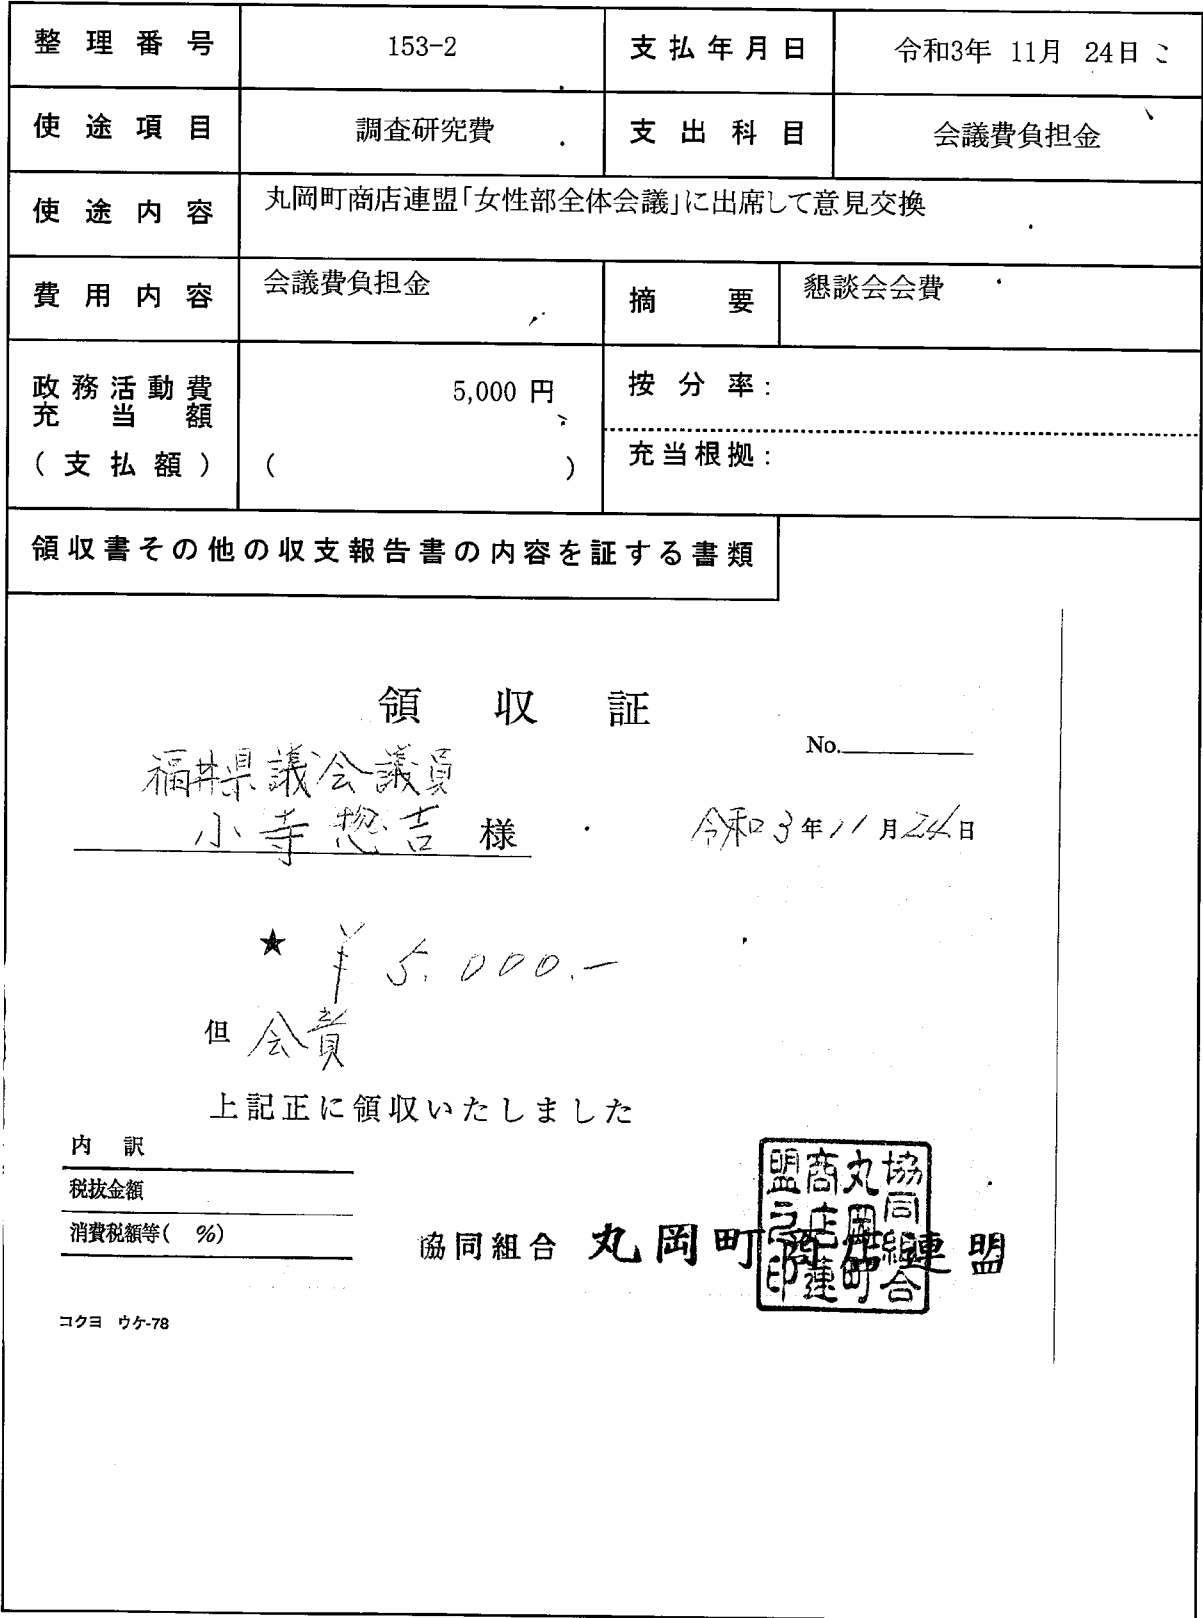 整理番号 153-2 支払年月日 令和3年 11月 24日
使途項目 調査研究費 支出科目 会議費負担金
使途内容 丸岡町商店連盟「女性部全体会議」に出席して意見交換
費用内容 会議費負担金 摘要 懇談会会費
政務活動費充当額 5,000 円 按分率:
(支払額) ( ) 充当根拠:
領収書その他の収支報告書の内容を証する書類
領収証
No.
福井県議会議員
小寺惣吉 様 令和3年11月24日
★ ¥5.000.-
但 会費
上記正に領収いたしました
内訳
税抜金額
消費税額等( %)
協同組合 丸岡町商店連盟
協同組合
丸岡町
商店連
盟之印
コクヨ ウケ-78